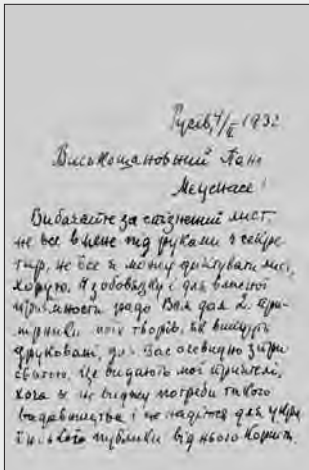 Русів, 4/II 1932
Високошановний Пане
Меценасе!
Вибачайте за спізнений лист,
не все в мене під руками є секре-
тар, не все я можу диктувати лист,
хорую. Я з обовязку і для власної
приємности радо Вам дам 2 при-
мірники моїх творів, як вийдуть
друковані, для Вас очевидно з при-
святою. Це видають мої приятелі,
хоча я не виджу потреби такого
видавництва і не надіюся для укра
їнської публики від нього користи.